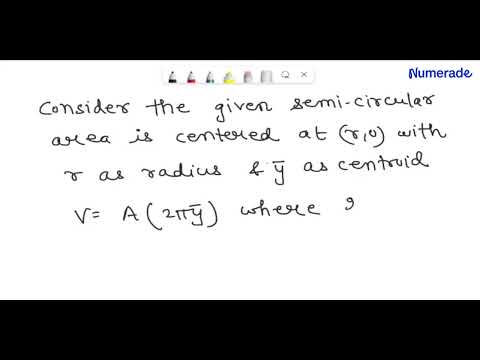 Numerade
Consider the given semi-circular
area is centered at (r,0) with
r as radius & ȳ as centroid
V= A(2πȳ) where